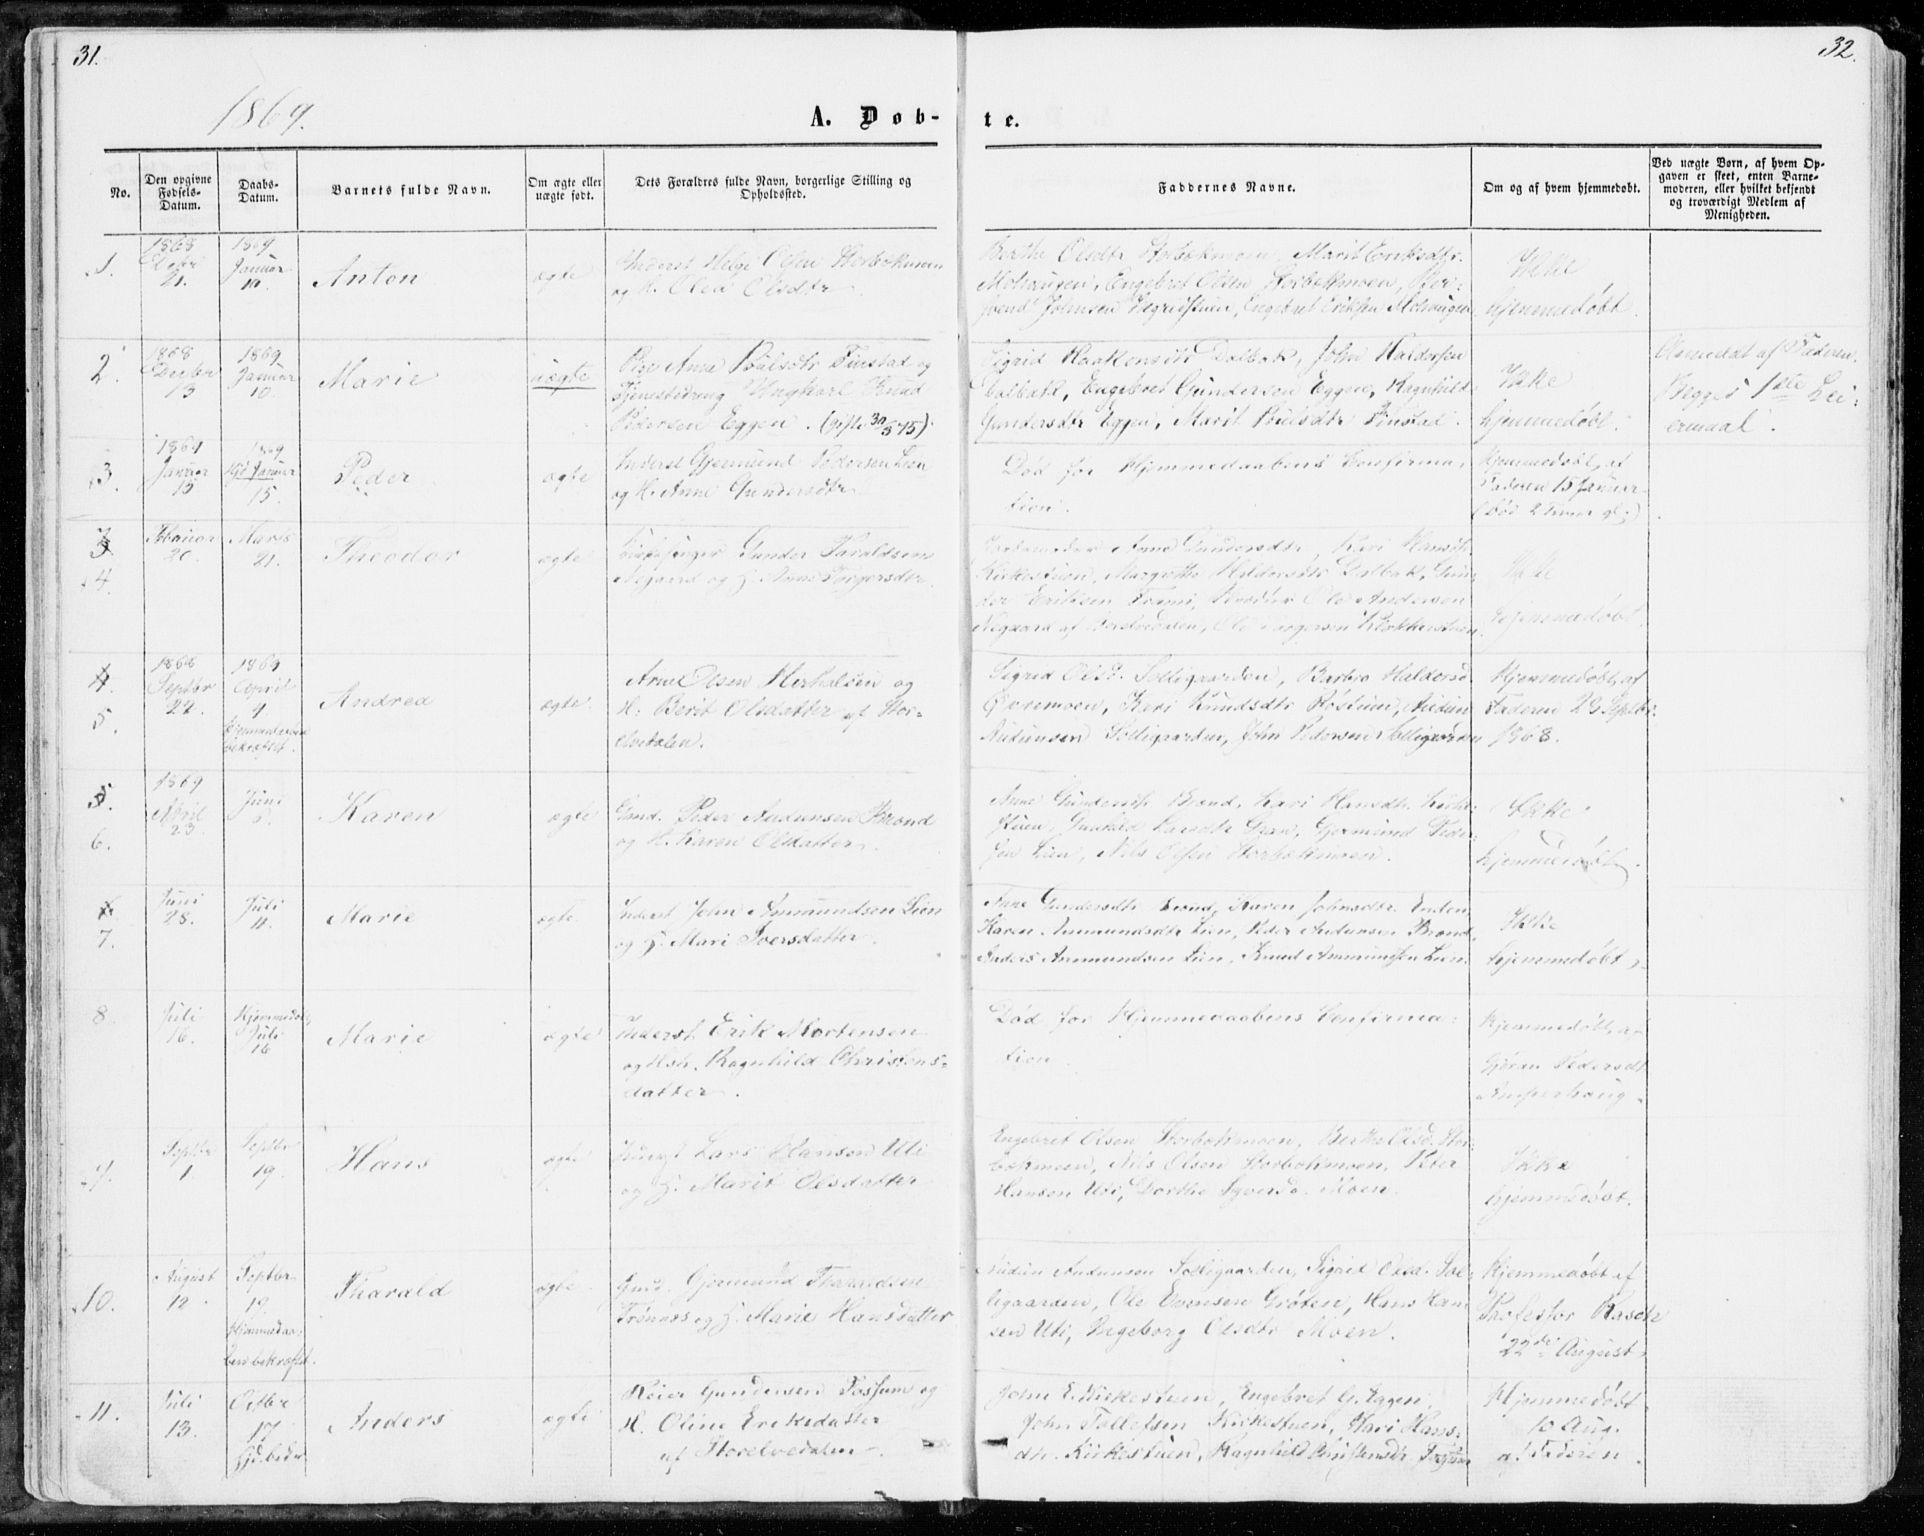 31.
32.
1869.
A. Døb-
te.
No.
Den opgivne
Fødsels-
Datum.
Daabs-
Datum.
Barnets fulde Navn.
Om ægte eller
uægte født.
Dets Forældres fulde Navn, borgerlige Stilling og
Opholdssted.
Faddernes Navne.
Om og af hvem hjemmedøbt.
Ved uægte Børn, af hvem Op-
gaven er skeet, enten Barne-
moderen, eller hvilket bekjendt
og troværdigt Medlem af
Menigheden.
1.
1868
21.
1869
Januar
10.
Anton
ægte
Inderst Helge Olsen Storbekmoen
og H. Olea Olsdtr
Berthe Olsdtr Storbekmoen, Marit Eriksdtr
Mohaugen, Engebret Olsen Storbekmoen,
Johnsen Negrustuen, Engebret Eriksen Mohaugen
Ikke
hjemmedøbt.
2.
1868
Decbr
13
1869
Januar
10.
Marie
uægte
Pige Anne Poulsdtr Finstad og
Tjenestedreng Ungkarl Knud
Pedersen Eggen. (gift 30/3 75)
Sigrid Haakonsdtr Dalbak, John Haldorsen
Dalbak, Engebret Gundersen Eggen, Ragnhild
Gundersdtr Eggen, Marit Poulsdtr Finstad.
Ikke
hjemmedøbt.
af Faderen.
Begges 1ste Lei-
ermaal.
3.
1869
Januar
15
1869
Hjd. Januar
15.
Peder
ægte
Inderst Gjermund Pedersen Lien
og H. Anne Gundersdtr
Død før Hjemmedaabens Confirma-
tion.
Hjemmedøbt af
Faderen 15 Januar
(Død 2 Timer gl.)
3
4
Februar
20.
Marts
21.
Theodor
ægte
Kirkesanger Gunder Taraldsen
Negaard og H. Anne Torgersdtr.
Anne Gundersdtr, Kari Hansdtr
Kirkestuen, Margrethe Haldorsdtr Dalbak, Gun-
der Eriksen Ole Andersen
Negaard af Storelvedalen, Ole Torgersen Klokkerstuen.
Ikke
hjemmedøbt.
4.
5.
1868
Septbr
22.
1869
April
4
Hjemmedaaben
bekræftet.
Andrea
ægte.
Arne Olsen og
H. Berit Olsdatter af Stor-
elvedalen.
Sigrid Olsd. Solligaarden, Barbro Haldorsd.
Øvremoen, Kari Knudsdtr Rostuen, Audun
Audunsen Solligaarden, John Pedersen Solligaarden
Hjemmedøbt af
Faderen 23 Septbr.
1868.
5.
6.
1869
April
23
Juni
Karen
ægte
Gmd. Peder Audunsen Brænd
og H. Karen Olsdatter.
Anne Gundersdtr Brænd, Kari Hansdtr. Kirke-
stuen, Gunhild Larsdtr Gran, Gjermund Peder-
sen Lien, Nils Olsen Storbekmoen.
Ikke
hjemmedøbt.
6.
7.
Juni
28.
Juli
11.
Marie
ægte
Inderst John Ammundsen Lien
og H. Mari Iversdatter.
Anne Gundersdtr Brænd, Karen Johnsdtr. Enden,
Karen Ammundsdtr Lien, Peder Audunsen Brænd,
Anders Ammundsen Lien, Knud Ammundsen Lien.
Ikke
hjemmedøbt.
8.
Juli
16.
Hjemmedøbt
Juli
16
Marie
ægte
Inderst Erik Mortensen
og Hstr. Ragnhild Christens-
datter.
Død før Hjemmedaabens Confirma-
tion.
Hjemmedøbt af
Gjøran Pedersdt.
9.
Septbr
1.
Septbr
19.
Hans
ægte
Lars Hansen Uti
og H. Marit Olsdatter
Engebret Olsen Storbekmoen, Berthe Olsd. Stor-
bekmoen, Nils Olsen Storbekmoen, Peter
Hansen Uti, Dorthe Syversd. Moen.
Ikke
hjemmedøbt.
10.
August
12.
Septbr.
19.
Hjemmedaa-
ben bekræftet.
Tharald
ægte.
Gmd. Gjermund Tharaldsen
Trønnes og H. Marie Hansdatter
Audun Audunsen Solligaarden, Sigrid Olsd. Sol-
ligaarden, Ole Evensen Grøten, Hans Han-
sen Uti, Ingeborg Olsdtr Moen.
Hjemmedøbt af
Professor Rasch
22de August.
11.
Juli
13.
Octbr
17
Hjd. bekr.
Anders
ægte
Reier Gundersen Fossum og
H. Oline Eriksdatter
af Storelvedalen.
John E. Kirkestuen, Engebret G. Eggen,
John Tollefsen Kirkestuen, Kari Hans-
dtr. Kirkestuen, Ragnhild Fossum
Hjemmedøbt
10 Aug.
af Faderen.